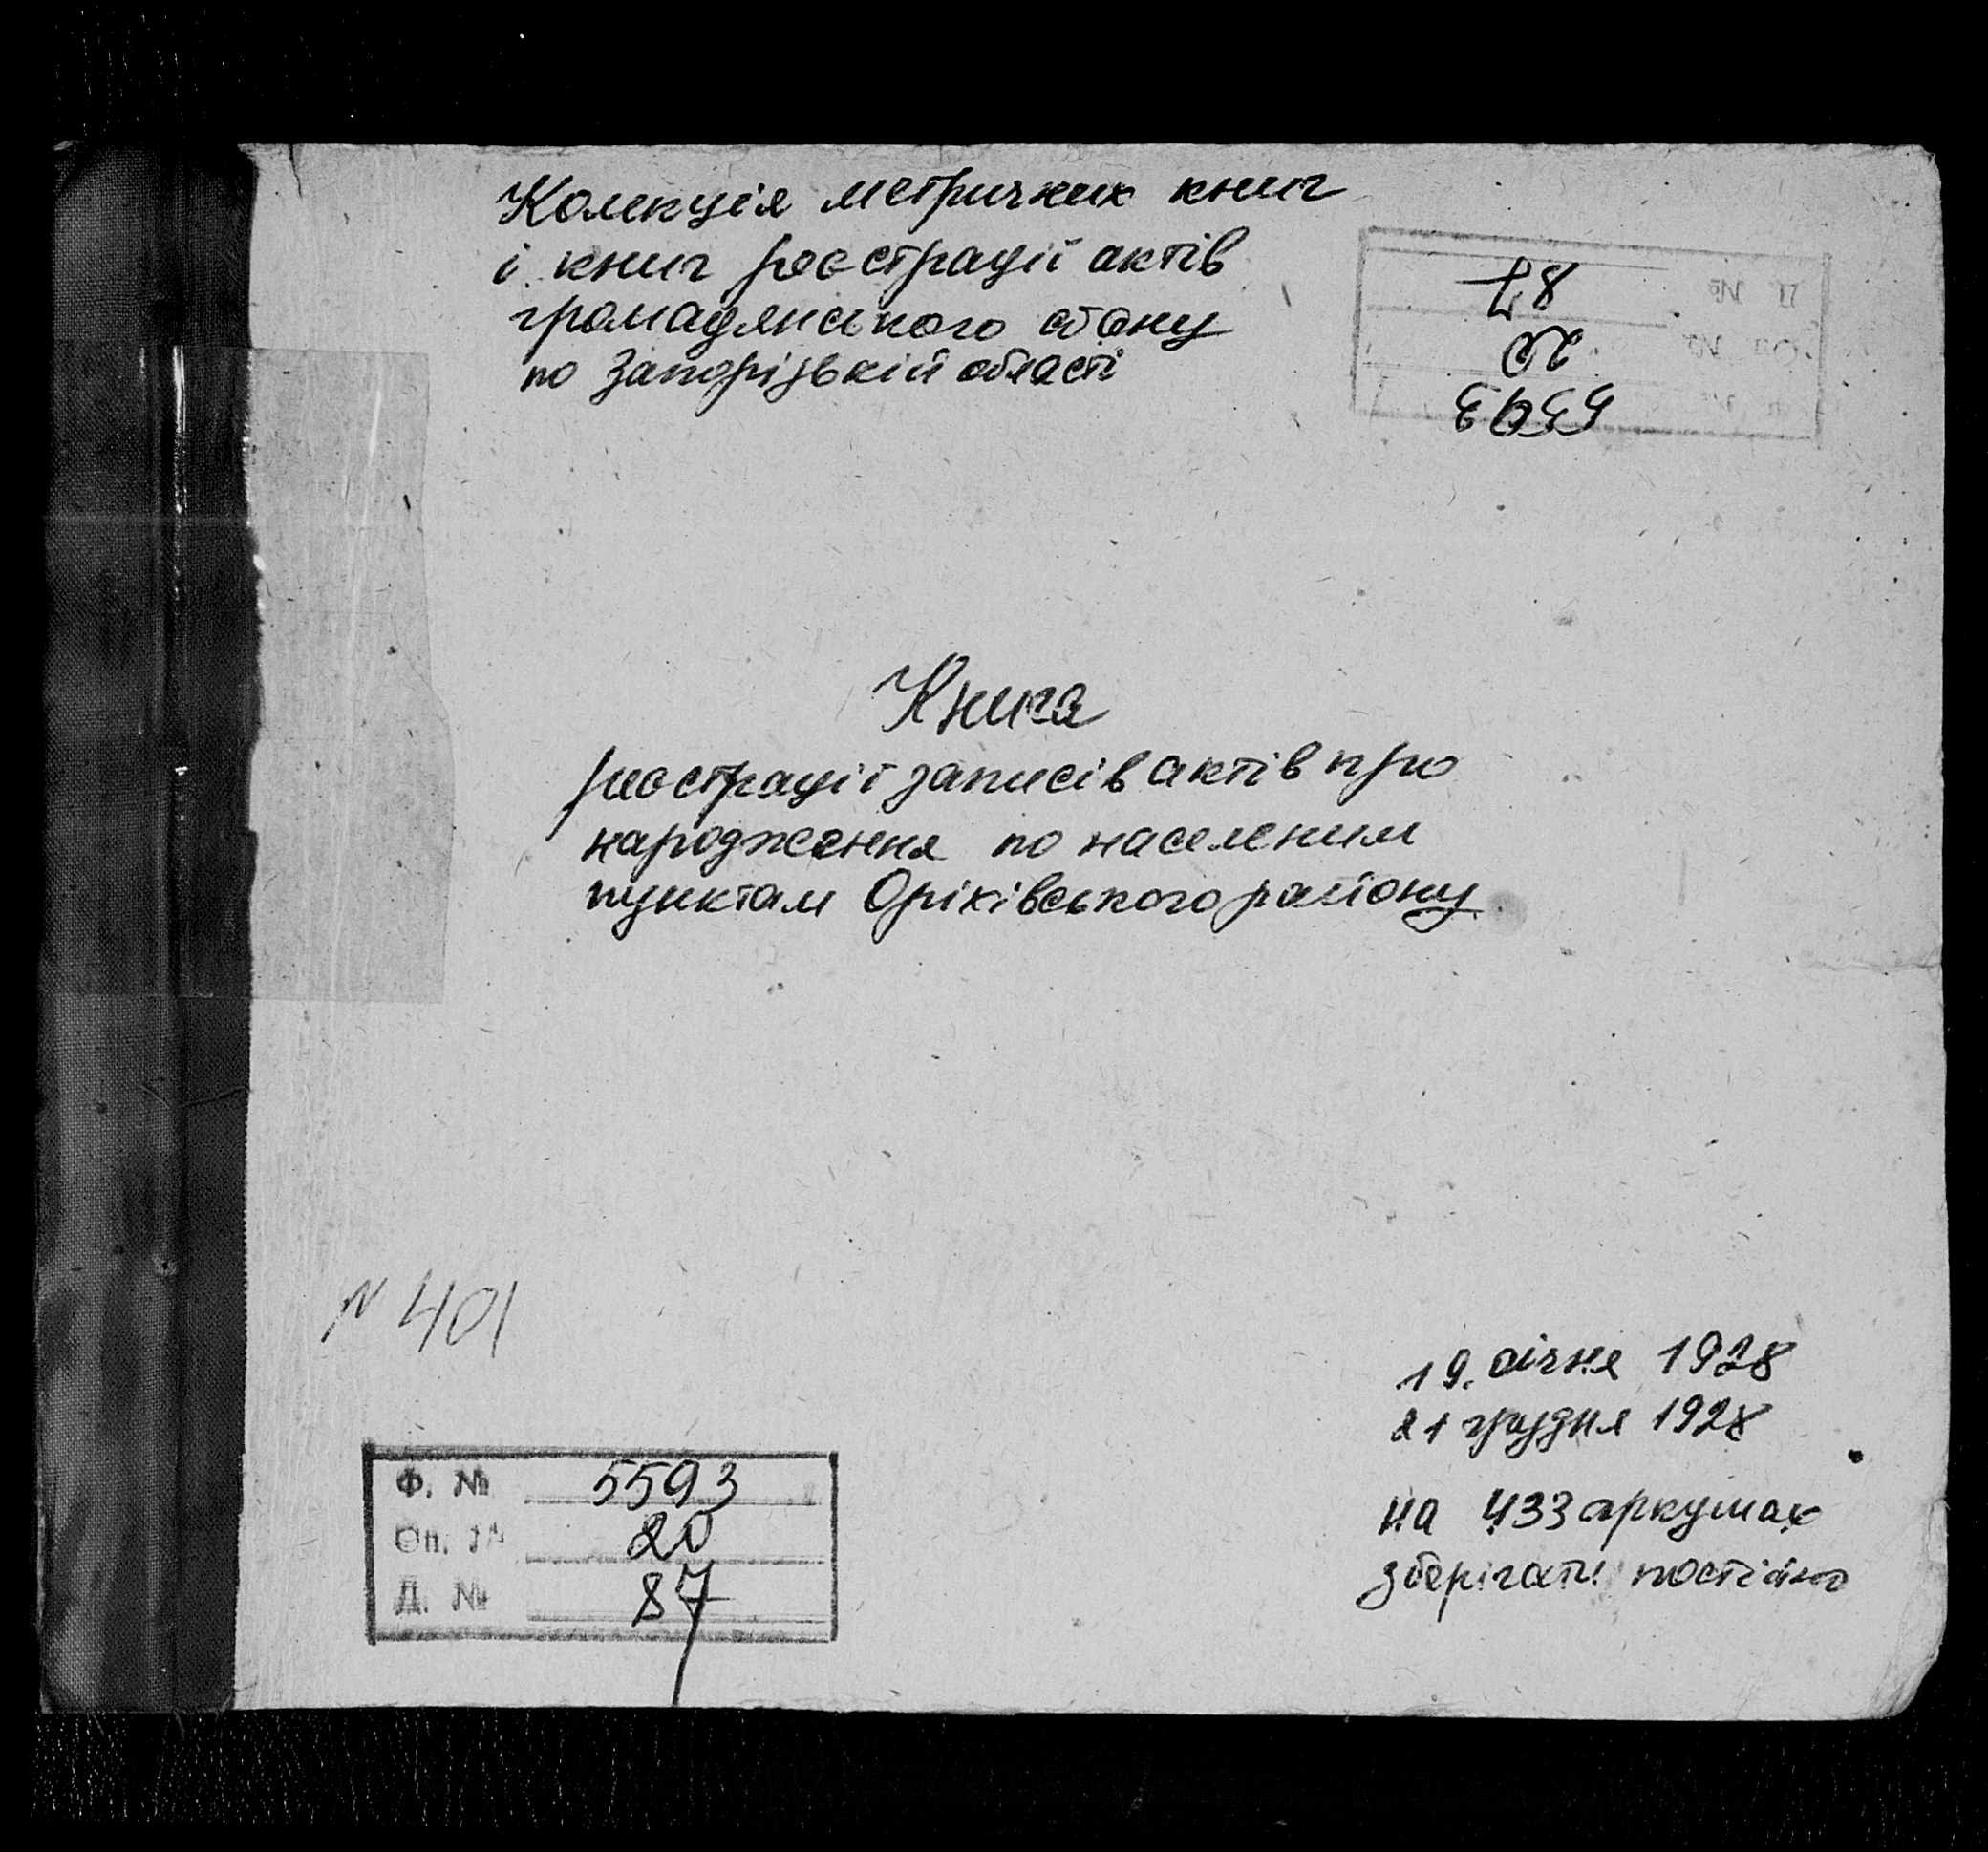 Колекція метричних книг
і книг реєстрації актів
громадянського стану
по Запорізькій області
Д. №
87
Оп. №
20
5593
Книга
реєстрації записів актів про
народження по населеним
пунктам Оріхівського району
N 401
19 січня 1928
21 грудня 1928
на 433 аркушах
зберігати постійно
Ф. № 5593
Оп. № 20
Д. № 87